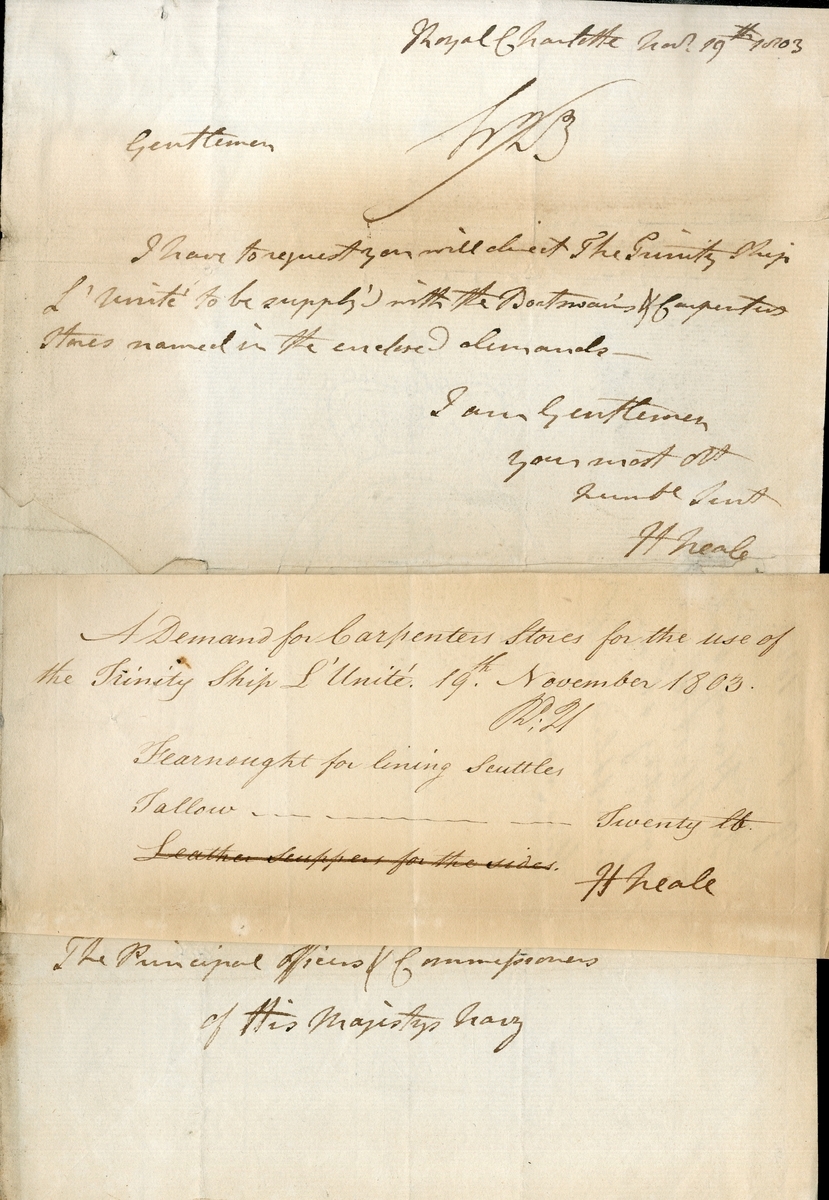 Royal Charlotte Novr. 19th 1803
Gentlemen
I have to request you will direct The Trinity Ship
L'Unité to be supply'd with the Boatswains & Carpenters
Stores named in the enclosed demands—
I am Gentlemen
your most Obt
humble Servt
H Neale
A Demand for Carpenters Stores for the use of
the Trinity Ship L'Unité. 19th. November 1803.
Fearnought for lining Scuttles
Tallow — — — — — Twenty lb.
Leather Scuppers for the sides.
H Neale
The Principal Officers & Commissioners
of His Majestys Navy